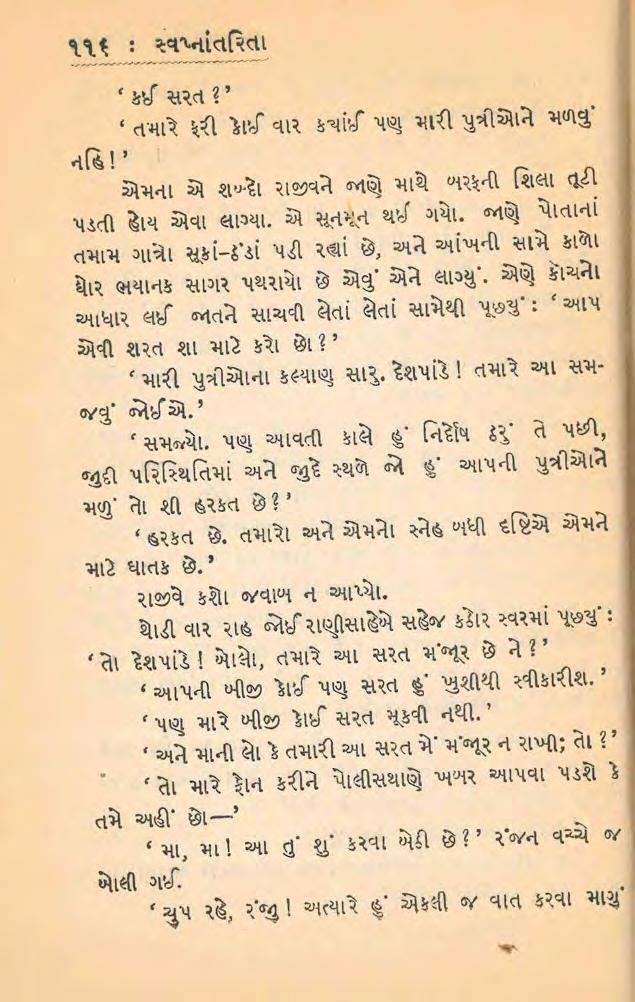 ૧૧૬ : સ્વપ્નાંતરિતા
‘ કઈ સરત ?’
‘ તમારે ફરી કોઈ વાર કયાંઈ પણ મારી પુત્રીઓને મળવું
નહિ ! ’
એમના એ શબ્દો રાજીવને જાણે માથે બરફની શિલા તૂટી
પડતી હોય એવા લાગ્યા. એ સૂનમૂન થઈ ગયો. જાણે પોતાનાં
તમામ ગાત્રો સૂકાં-ઠંડાં પડી રહ્યાં છે, અને આંખની સામે કાળો
ઘોર ભયાનક સાગર પથરાયો છે એવું એને લાગ્યું. એણે કૉચનો
આધાર લઈ જાતને સાચવી લેતાં લેતાં સામેથી પૂછયું : ‘ આપ
એવી શરત શા માટે કરો છો ? ’
‘ મારી પુત્રીઓના કલ્યાણ સારુ. દેશપાંડે ! તમારે આ સમ-
જવું જોઈએ.’
‘ સમજ્યો. પણ આવતી કાલે હું નિર્દોષ ઠરું તે પછી,
જુદી પરિસ્થિતિમાં અને જુદે સ્થળે જો હું આપની પુત્રીઓને
મળું તો શી હરકત છે ? ’
‘ હરકત છે. તમારો અને એમનો સ્નેહ બધી દૃષ્ટિએ એમને
માટે ઘાતક છે. ’
રાજીવે કશો જવાબ ન આપ્યો.
થોડી વાર રાહ જોઈ રાણીસાહેબે સહેજ કઠોર સ્વરમાં પૂછયું :
‘ તો દેશપાંડે ! બોલો, તમારે આ સરત મંજૂર છે ને ? ’
‘ આપની બીજી કોઈ પણ સરત હું ખુશીથી સ્વીકારીશ. ’
‘ પણ મારે બીજી કોઈ સરત મૂકવી નથી. ’
‘ અને માની લો કે તમારી આ સરત મેં મંજૂર ન રાખી; તો ? ’
‘ તો મારે ફોન કરીને પોલીસથાણે ખબર આપવા પડશે કે
તમે અહીં છો— ’
‘ મા, મા ! આ તું શું કરવા બેઠી છે ? ’ રંજન વચ્ચે જ
બોલી ગઈ.
‘ ચુપ રહે, રંજુ ! અત્યારે હું એકલી જ વાત કરવા માગું